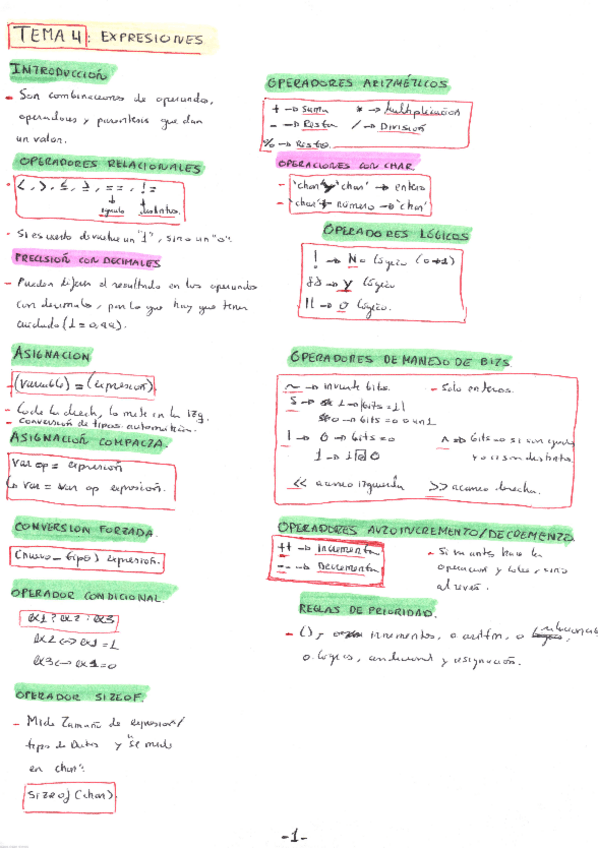 TEMA 4: EXPRESIONES
INTRODUCCIÓN
- Son combinaciones de operandos,
operadores y parentesis que dan
un valor.
OPERADORES RELACIONALES
- <, >, ≤, ≥, ==, !=
iguales distintos
- Si es cierto devuelve un "1", sino un "0".
PRECISIÓN CON DECIMALES
- Pueden el resultado en los operandos
con decimales, por lo que hay que tener
cuidado (1 = 0,99).
ASIGNACION
- (variable) = (expresión)
- Coge la derech, lo mete en la izq.
- conversión de tipos automática.
ASIGNACIÓN COMPACTA.
var op = expresión
↳ var = var op expresión.
CONVERSION FORZADA.
(nuevo_tipo) expresión.
OPERADOR CONDICIONAL.
ex1 ? ex2 : ex3
ex2 <-> ex1 = 1
ex3 <-> ex1 = 0
OPERADOR SIZEOF.
- Mide Tamaño de expresion/
tipo de Datos y "se mide
en char".
sizeof (char)
OPERADORES ARITMÉTICOS
+ → Suma * → Multiplicación
- → Resta / → División
% → Resto
OPERACIONES CON CHAR.
- 'char' 'char' → entero
- 'char' + número → 'char'
OPERADORES LÓGICOS
! → No lógico (0→1)
&& → Y lógico
|| → O lógico.
OPERADORES DE MANEJO DE BITS.
~ → invierte bits. - Solo enteros.
& → 1 → bits = 11
0 → bits = 0 o un 1
| → 0 → bits = 0 ^ → bits → 0 si son iguales
1 → 1 0 y 1 si son distintos
<< avance izquierda >> avance derecha.
OPERADORES AUTOINCREMENTO/DECREMENTO
++ → Incrementa - Si va antes hace la
-- → Decrementa operacion y , sino
al revés.
REGLAS DE PRIORIDAD.
- (), incrementos, o aritm, o relacionales
o. lógicos, condicional y asignación.
-1-